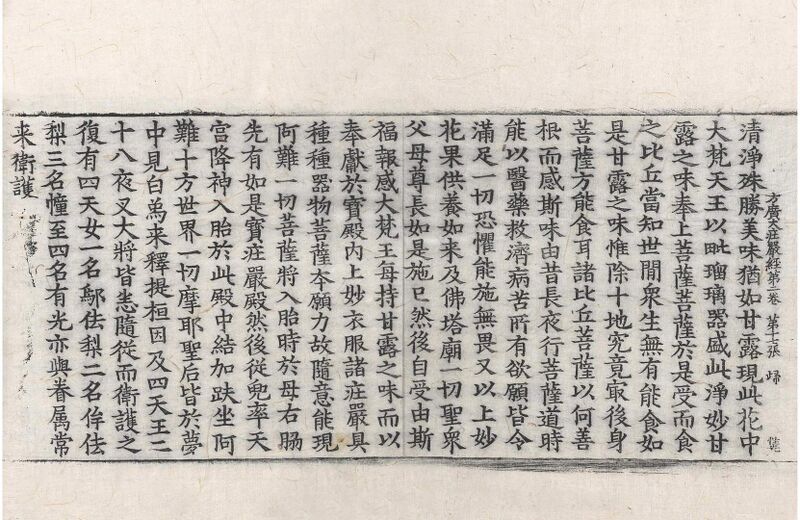 方廣大莊嚴經第二卷 第十七張 歸
清淨殊勝美味猶如甘露現此花中
大梵天王以毗瑠璃器盛此淨妙甘
露之味奉上菩薩菩薩於是受而食
之比丘當知世閒衆生無有能食如
是甘露之味惟除十地究竟冣後身
菩薩方能食耳諸比丘菩薩以何善
根而感斯味由昔長夜行菩薩道時
能以醫藥救濟病苦所有欲願皆令
滿足一切恐懼能施無畏又以上妙
花果供養如来及佛塔廟一切聖衆
父母尊長如是施已然後自受由斯
福報感大梵王每持甘露之味而以
奉獻於寶殿內上妙衣服諸莊嚴具
種種器物菩薩本願力故隨意能現
阿難一切菩薩將入胎時於母右脇
先有如是寶莊嚴殿然後從兜率天
宮降神入胎於此殿中結加趺坐阿
難十方世界一切摩耶聖后皆於夢
中見白爲来釋提桓因及四天王二
十八夜叉大將皆悉隨從而衛護之
復有四天女一名鄔佉梨二名侔佉
梨三名幢至四名有光亦與眷属常
来衛護